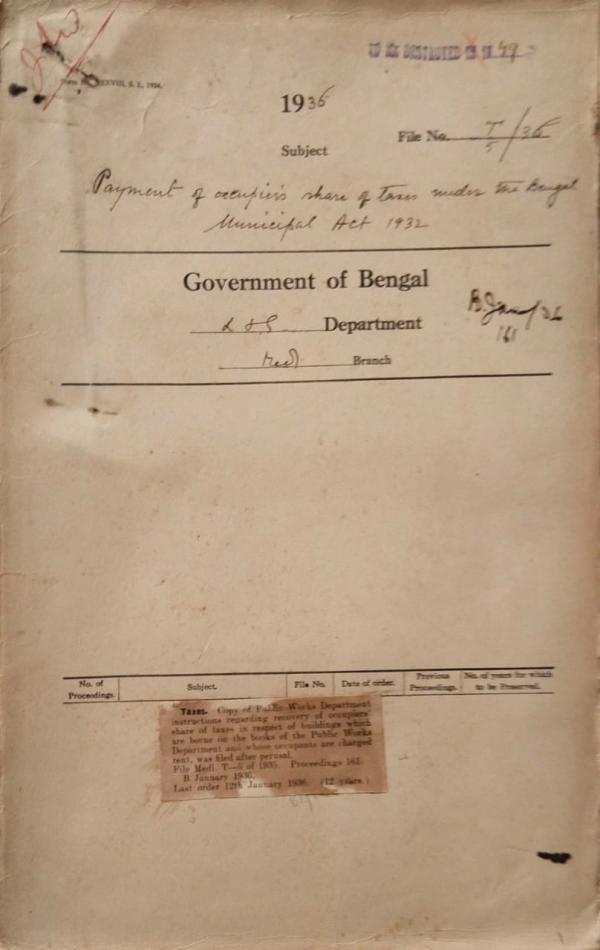 TO BE DESTROYED IN 1949
XXVIII, S. 2, 1934.
1936
File No. T/5/36
Subject
Payment of occupier's share of taxes under the Bengal
Municipal Act 1932
Government of Bengal
L S G Department
B. Jany/36
161
Medl Branch
No. of Proceedings. Subject. File No. Date of order. Previous Proceedings. No. of years for which to be Preserved.
Taxes. Copy of Public Works Department
instructions regarding recovery of occupiers'
share of taxes in respect of buildings which
are borne on the books of the Public Works
Department and whose occupants are charged
rent, was filed after perusal.
File Medl. T—5 of 1935. Proceedings 161.
B January 1936.
Last order 12th January 1936. (12 years.)